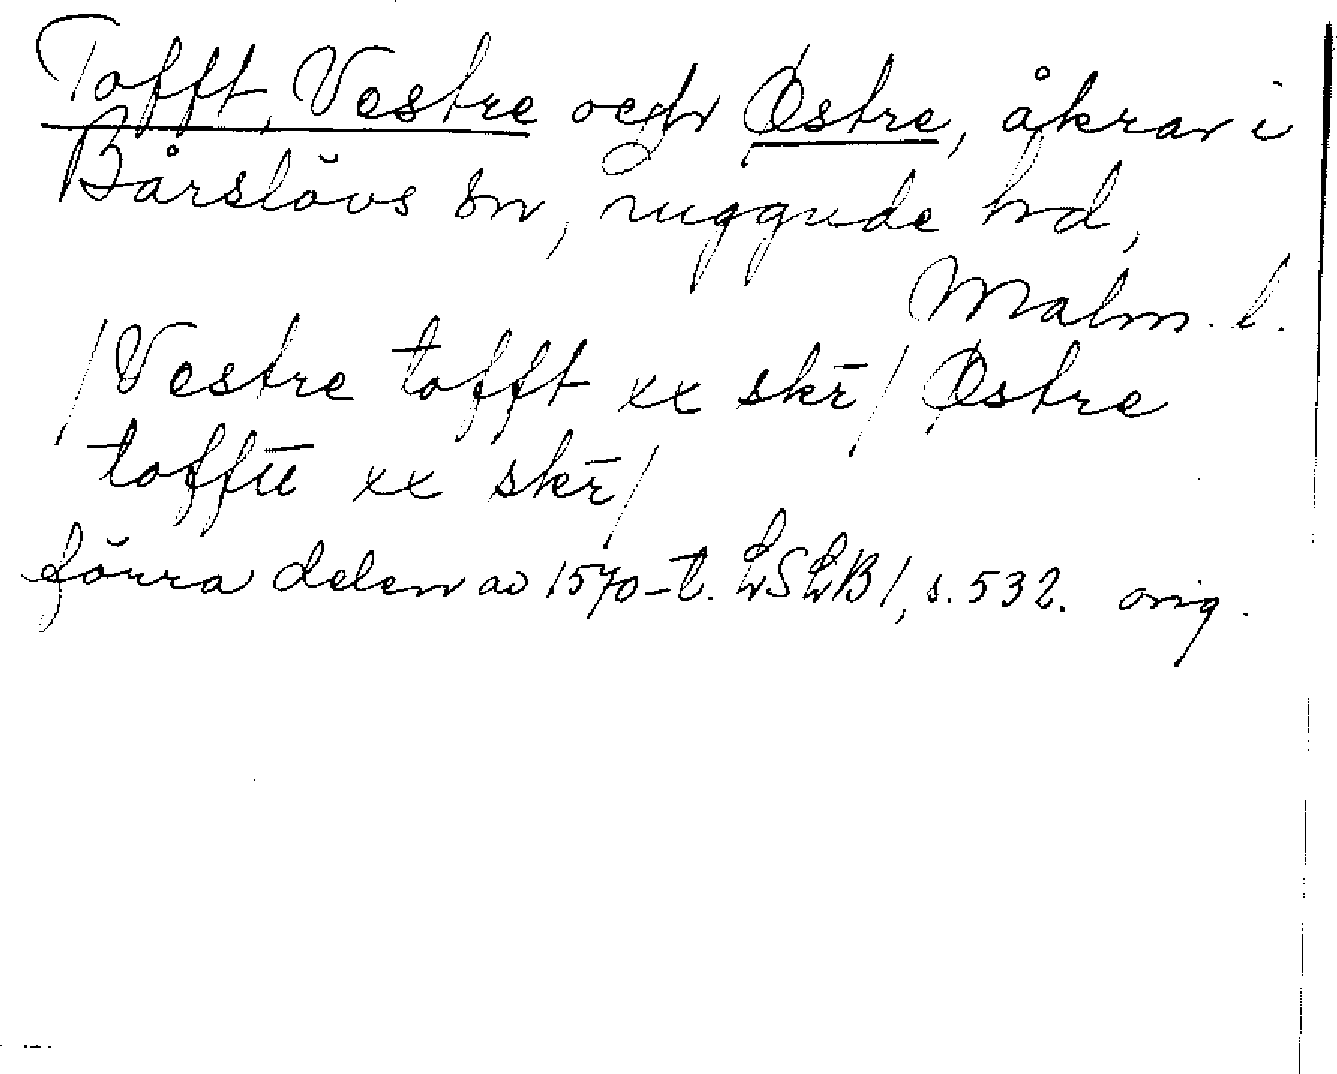 Tofft, Vestre och Østre, åkrar i
Bårslövs sn, ruggude hd,
Malm. l.
/Vestre tofft xx skr̄/ Østre
xx skr̄/
förra delen av 1570-t. LSLB1, s. 532. orig.